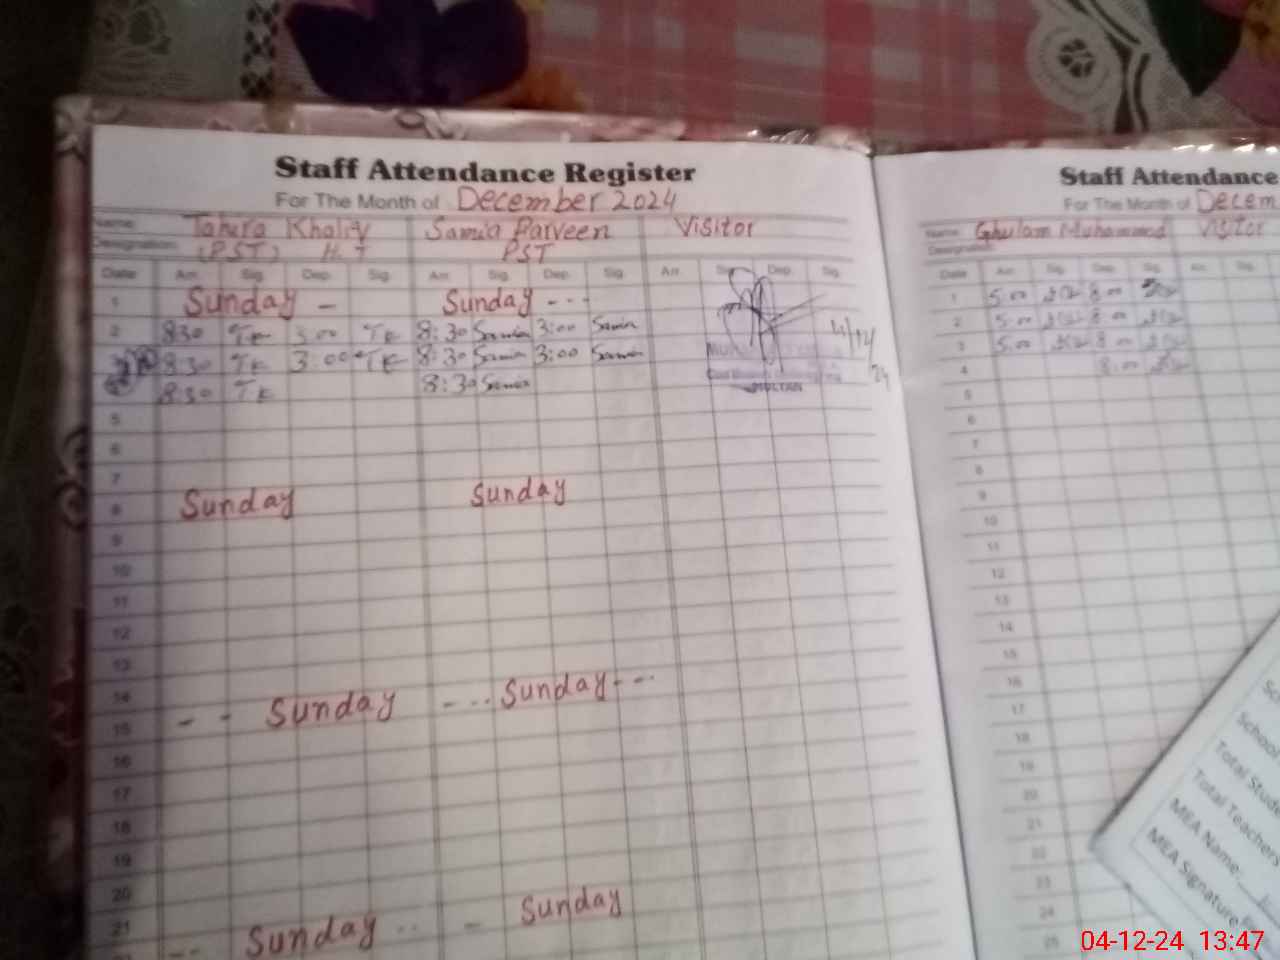 Staff Attendance Register
For The Month of December 2024
Name Tahira Khaliq Samia Parveen Visitor
Designation (PST) H.T PST
Date Arr. Sig. Dep. Sig. Arr. Sig. Dep. Sig. Arr. Sig. Dep. Sig.
1 Sunday - Sunday ---
2 830 TK 3.00 TK 8:30 Samia 3:00 Samia
830 TK 3.00 TK 8:30 Samia 3:00 Samia
830 TK 8:30 Samia
4/12/24
MULTAN
5
6
7
8 Sunday Sunday
9
10
11
12
13
14
15 -- Sunday --- Sunday ---
16
17
18
19
20
21
-- Sunday -- - Sunday
Staff Attendance
For The Month of Decem
Name Ghulam Muhammad Visitor
Designation
Date Arr. Sig. Dep. Sig. Arr. Sig.
1 5:00 8:00
2 5:00 8:00
3 5:00 8:00
4 8:00
5
6
7
8
9
10
11
12
13
14
15
16
17
18
19
20
21
22
23
24
25
School
Total Stude
Total Teachers
MEA Name:
MEA Signature
04-12-24 13:47